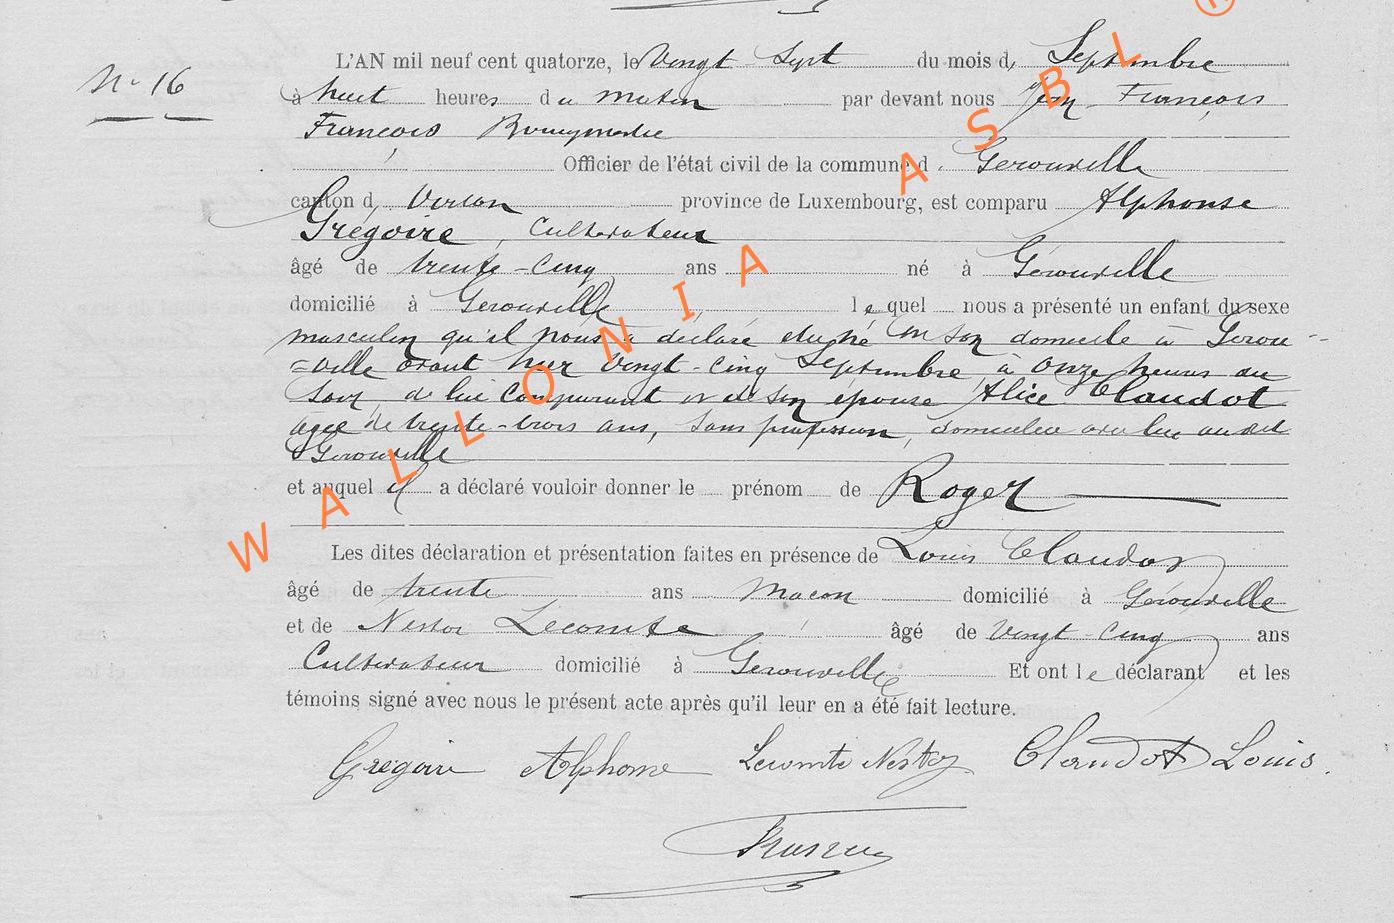 N° 16
L'AN mil neuf cent quatorze, le Vingt Sept du mois d, Septembre
à huit heures du matin par devant nous Jean François
François Bourgmestre
Officier de l'état civil de la commune d Gérouville
canton d, Virton province de Luxembourg, est comparu Alphonse
Grégoire, Cultivateur
âgé de trente-cinq ans né à Gérouville
domicilié à Gérouville lequel nous a présenté un enfant du sexe
masculin qu'il nous a déclaré être né en son domicile à Gérou
=ville avant hier vingt-cinq Septembre, à onze heures du
soir, de lui comparant et de son épouse Alice Claudot
agée de trente-trois ans, sans profession, domiciliée avec lui audit
Gérouville
et auquel il a déclaré vouloir donner le prénom de Roger
Les dites déclaration et présentation faites en présence de Louis Claudot
âgé de trente ans Maçon domicilié à Gérouville
et de Nestor Lecomte âgé de Vingt-cinq ans
Cultivateur domicilié à Gérouville Et ont le déclarant et les
témoins signé avec nous le présent acte après qu'il leur en a été fait lecture.
Grégoire Alphonse Lecomte Nestor Claudot Louis.
WALLONIA ASBL ®